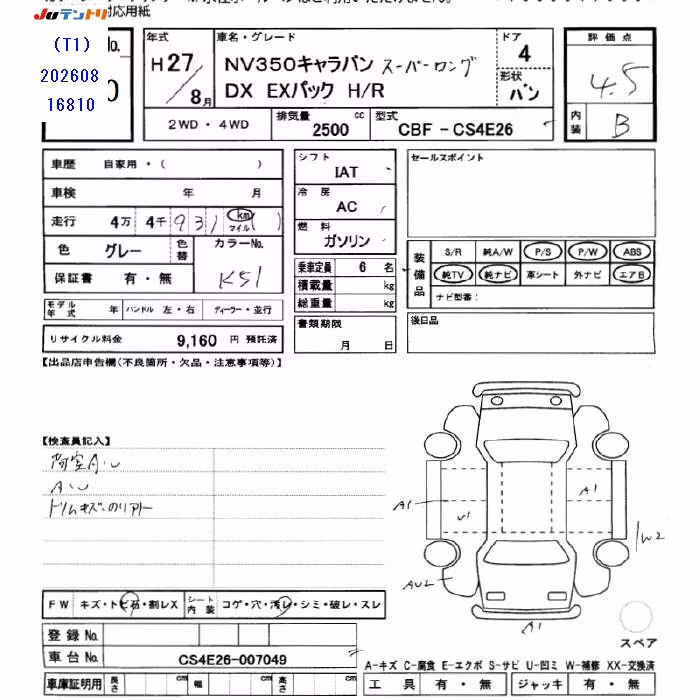 Juテントリ
対応用紙
(T1)
202608
16810
No.
0
年式
H27/8月
車名・グレード
NV350キャラバン スーパーロング
DX EXパック H/R
ドア
4
形状
バン
評価点
4.5
内装
B
2WD・4WD
排気量
2500 cc
型式
CBF-CS4E26
車歴 自家用・( )
車検 年 月
走行 4万 4千 931 km マイル ( )
色 グレー 色替
カラーNo.
K51
保証書 有・無
モデル年式 年 ハンドル 左・右 ディーラー・並行
リサイクル料金 9,160 円 預託済
シフト
IAT
冷房
AC
燃料
ガソリン
乗車定員 6 名
積載量 kg
総重量 kg
書類期限
月 日
セールスポイント
装備品
S/R 純A/W P/S P/W ABS
純TV 純ナビ 革シート 外ナビ エアB
ナビ型番:
後日品
【出品店申告欄(不良箇所・欠品・注意事項等)】
【検査員記入】
荷室A.U
A.U
トリムキズ.のリアリー
A1
A1
U1
W2
AU2
A1
スペア
FW キズ・トビ石・割レX
シート内装 コゲ・穴・汚レ・シミ・破レ・スレ
登録No.
車台No. CS4E26-007049
車庫証明用 長さ cm 幅 cm 高さ cm
A-キズ C-腐食 E-エクボ S-サビ U-凹ミ W-補修 XX-交換済
工具 有・無 ジャッキ 有・無